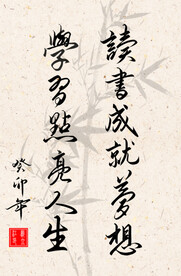 讀書成就夢想
學習點亮人生
癸卯年